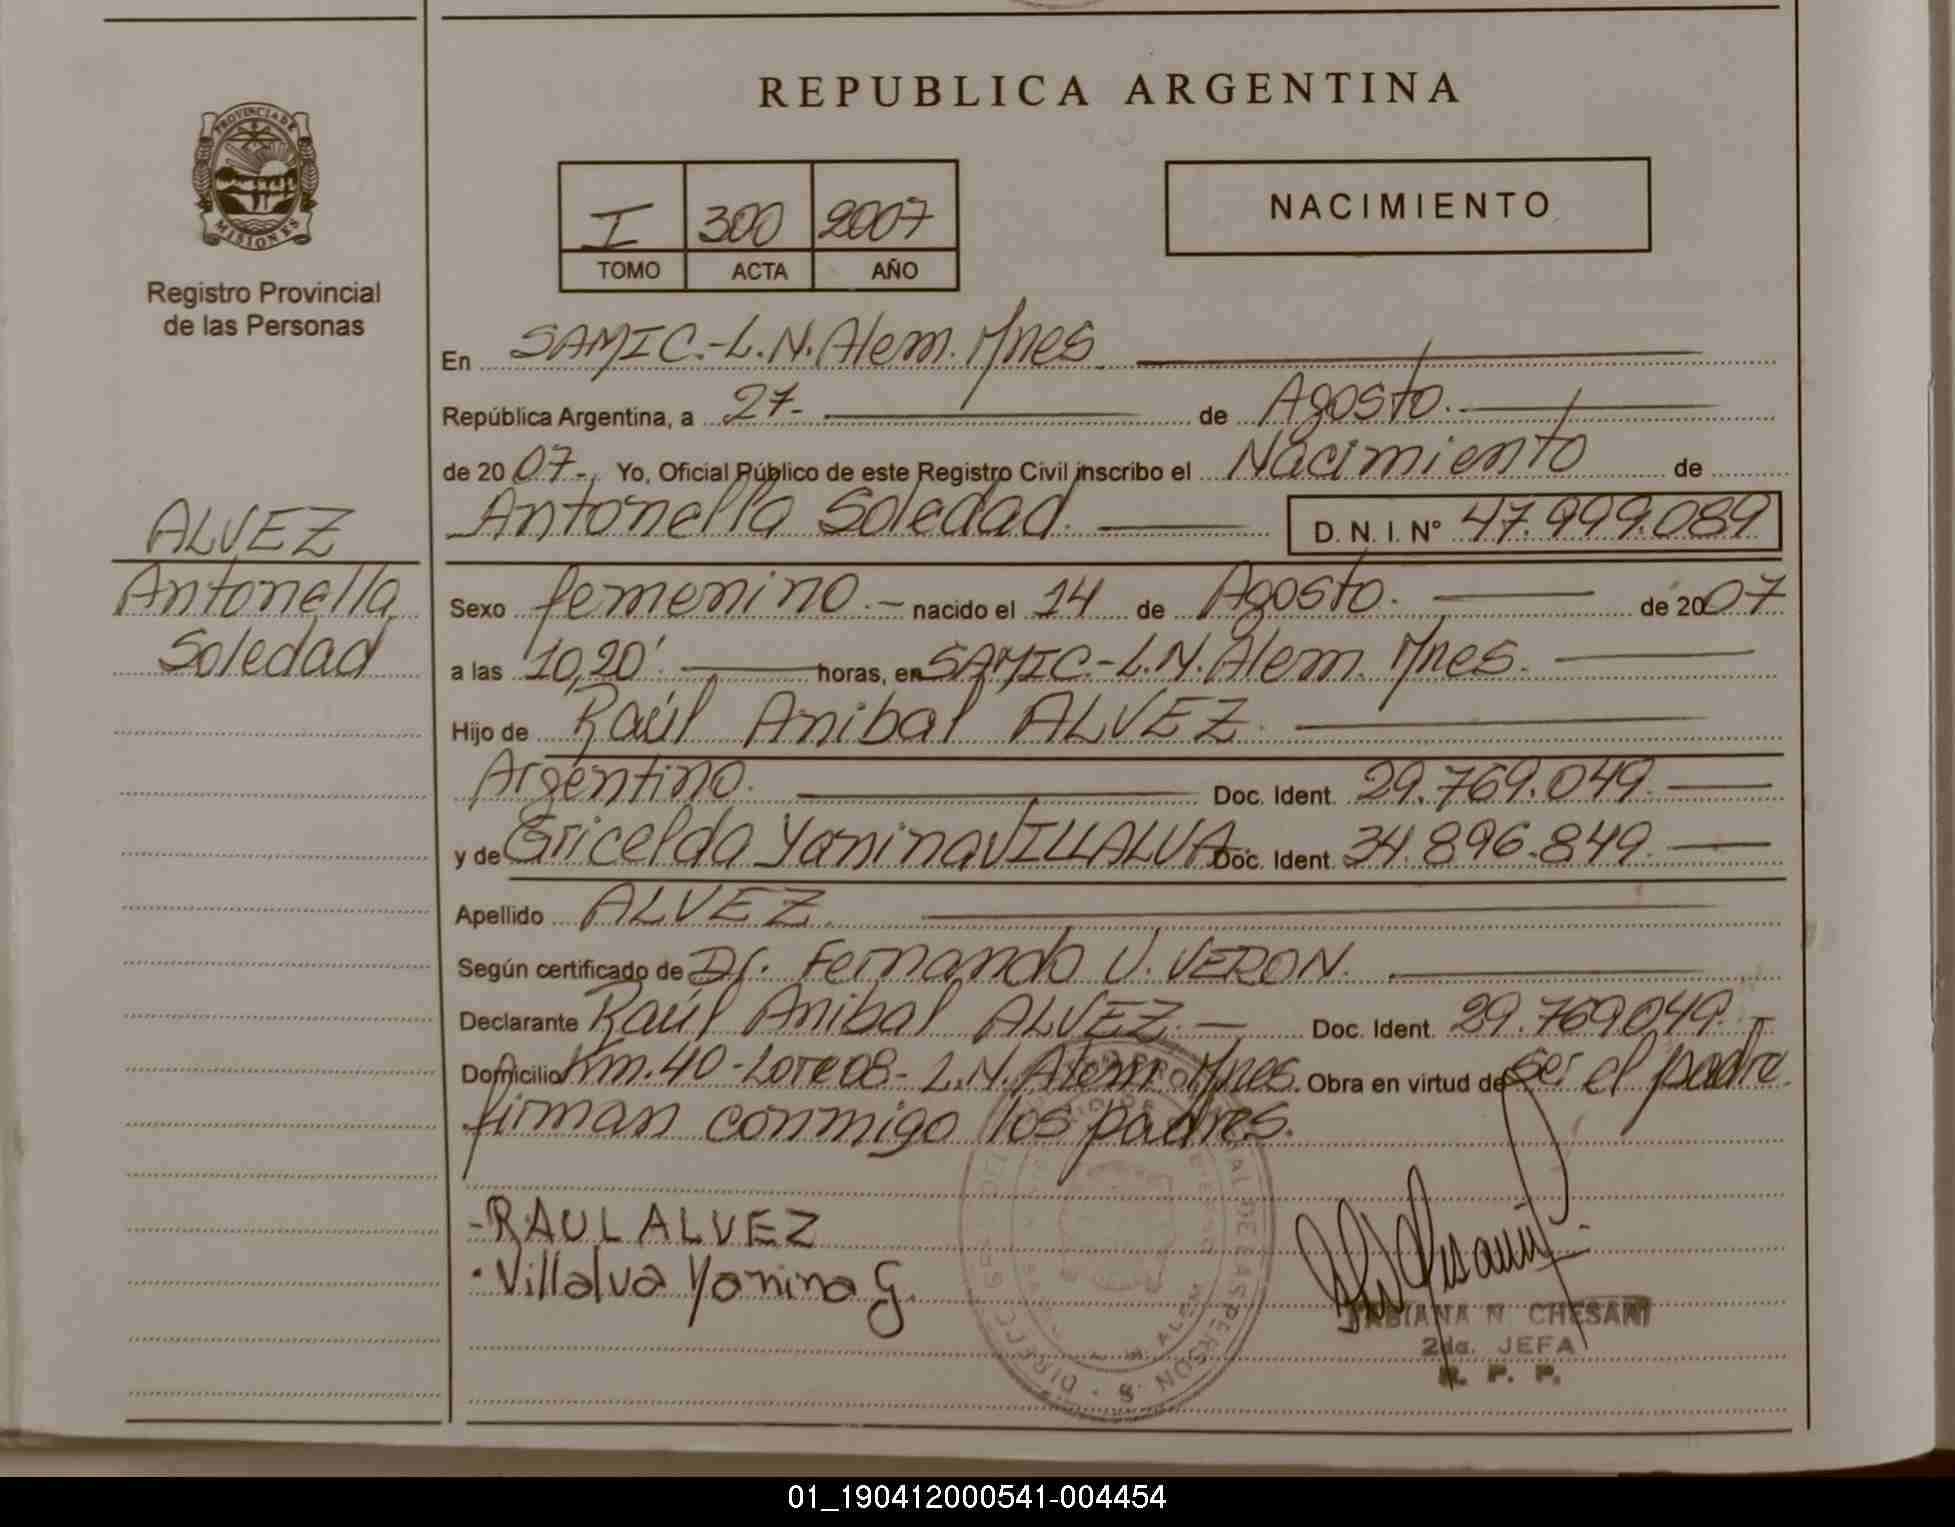 REPUBLICA ARGENTINA
PROVINCIA DE
MISIONES
Registro Provincial
de las Personas
I 300 2007
TOMO ACTA AÑO
NACIMIENTO
En SAMIC.-L.N.Alem.Mnes
República Argentina, a 27- de Agosto.
de 2007-, Yo, Oficial Público de este Registro Civil inscribo el Nacimiento de
Antonella Soledad. D. N. I. N° 47.999.089
ALVEZ
Antonella
Soledad
Sexo femenino.- nacido el 14 de Agosto. de 2007
a las 10,20' horas, en SAMIC.-L.N.Alem. Mnes.
Hijo de Raúl Anibal ALVEZ.
Argentino. Doc. Ident. 29.769.049.
y de Gricelda Yanina VILLALVA. Doc. Ident. 34.896.849.
Apellido ALVEZ.
Según certificado de Dr. Fernando V. VERON.
Declarante Raúl Anibal ALVEZ.- Doc. Ident. 29.769049.-
Domicilio Km.40-Lote 08- L.N. Alem Mnes. Obra en virtud de ser el padre.
firman conmigo los padres.
-RAUL ALVEZ
·Villalva Yanina G.
FABIANA N CHESANI
2da. JEFA
R. P. P.
01_190412000541-004454